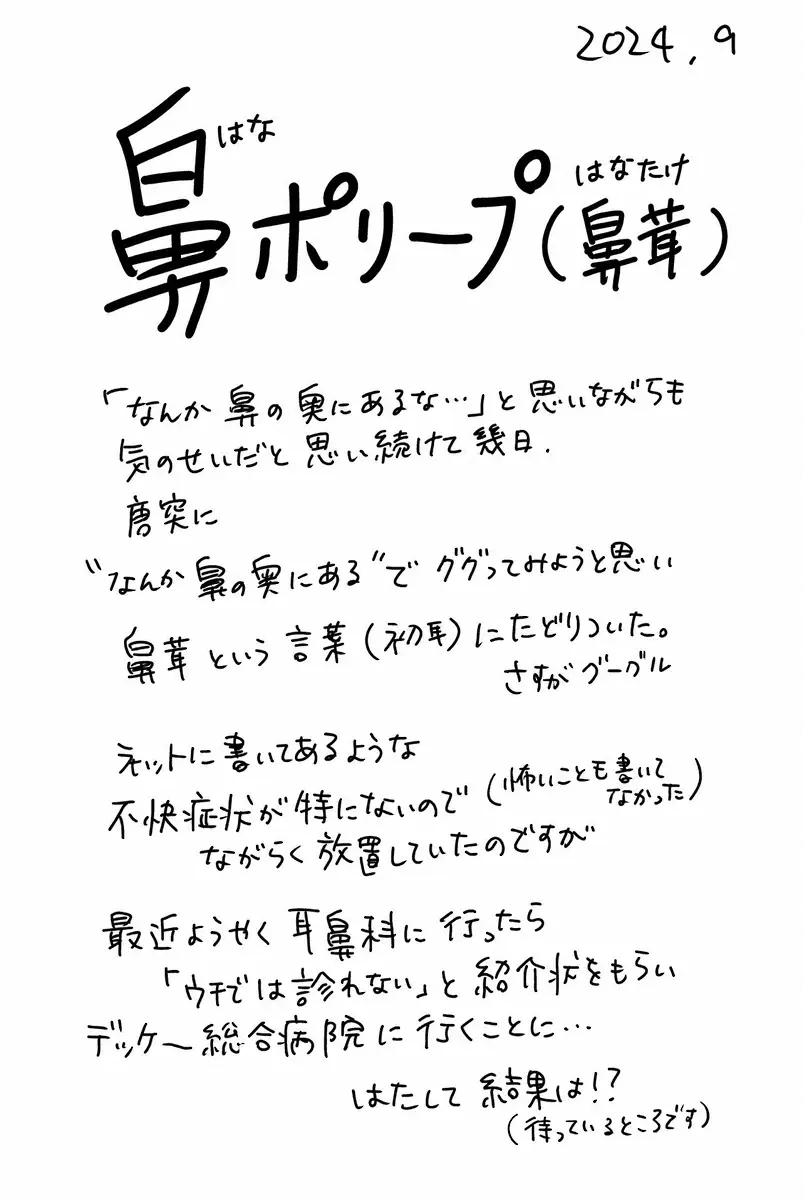 2024.9
はな
鼻ポリープ(鼻茸)
はなたけ
「なんか鼻の奥にあるな…」と思いながらも
気のせいだと思い続けて幾日.
唐突に
"なんか鼻の奥にある"でググってみようと思い
鼻茸という言葉(初耳)にたどりついた。
さすがグーグル
ネットに書いてあるような
不快症状が特にないので(怖いことも書いて
なかった)
ながらく放置していたのですが
最近ようやく耳鼻科に行ったら
「ウチでは診れない」と紹介状をもらい
デッケ〜総合病院に行くことに…
はたして結果は!?
(待っているところです)